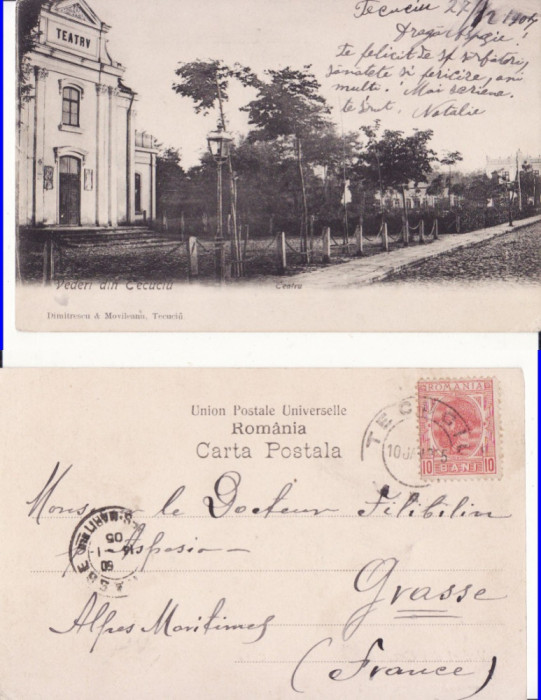 TEATRV
Tecuciu 27/12 1904
Dragă
te felicit de sf. sărbători,
sănătate și fericire, ani
mulți. Mai scriene.
te sărut. Natalie
Vederi din Tecuciu
Centru
Dimitrescu & Movileanu, Tecuciŭ
Union Postale Universelle
România
Carta Postala
ROMANIA
10 BANI 10
TECUCIU
10 JAN
Monsieur le Docteur Filibilin
Aspasia
Grasse
Alpes Maritimes
(France)
GRASSE ALPES-MARITIMES
05